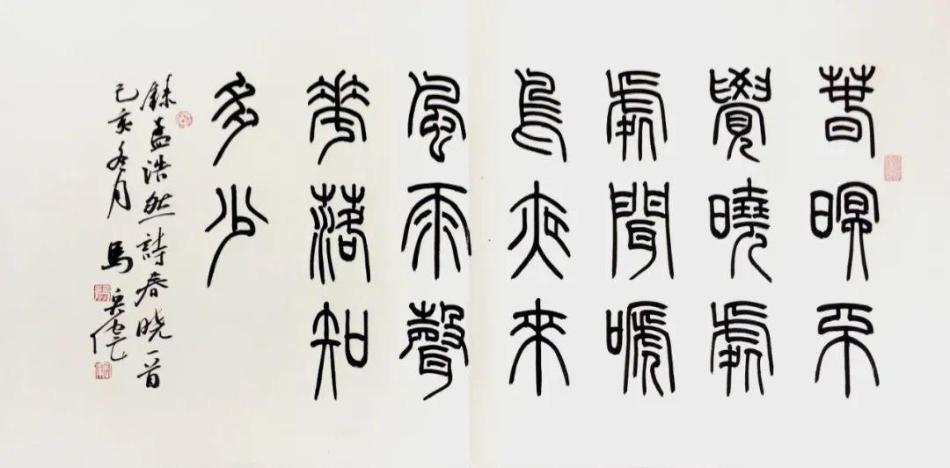 春瞑不
覺曉處
處聞嗁
鳥夜來
風雨聲
華落知
多少
録孟浩然詩春晓一首
己亥冬月 馬